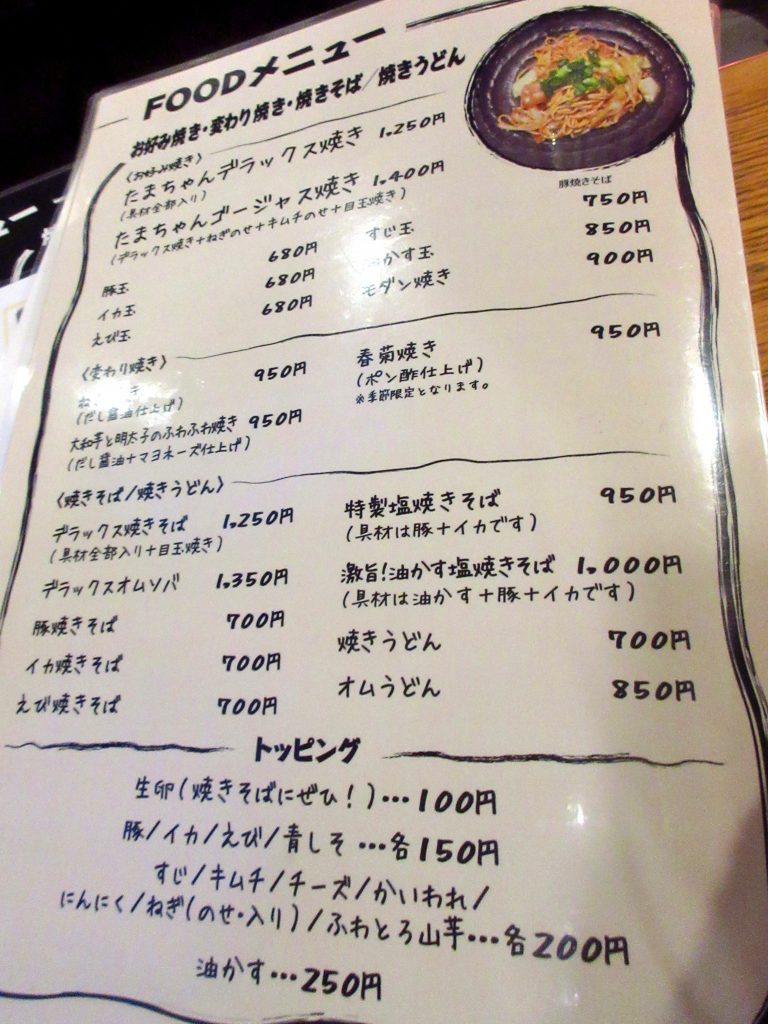 FOODメニュー
お好み焼き・変わり焼き・焼きそば/焼きうどん
豚焼きそば
〈お好み焼き〉
たまちゃんデラックス焼き 1,250円
(具材全部入り)
たまちゃんゴージャス焼き 1,400円
(デラックス焼き+ねぎのせ+キムチのせ+目玉焼き)
豚玉 680円
イカ玉 680円
えび玉 680円
すじ玉 750円
かす玉 850円
モダン焼き 900円
〈変わり焼き〉
950円
(だし醤油仕上げ)
大和芋と明太子のふわふわ焼き 950円
(だし醤油+マヨネーズ仕上げ)
春菊焼き 950円
(ポン酢仕上げ)
※季節限定となります。
〈焼きそば/焼きうどん〉
デラックス焼きそば 1,250円
(具材全部入り+目玉焼き)
デラックスオムソバ 1,350円
豚焼きそば 700円
イカ焼きそば 700円
えび焼きそば 700円
特製塩焼きそば 950円
(具材は豚+イカです)
激旨!油かす塩焼きそば 1,000円
(具材は油かす+豚+イカです)
焼きうどん 700円
オムうどん 850円
トッピング
生卵(焼きそばにぜひ!)…100円
豚/イカ/えび/青しそ…各150円
すじ/キムチ/チーズ/かいわれ/
にんにく/ねぎ(のせ・入り)/ふわとろ山芋…各200円
油かす…250円